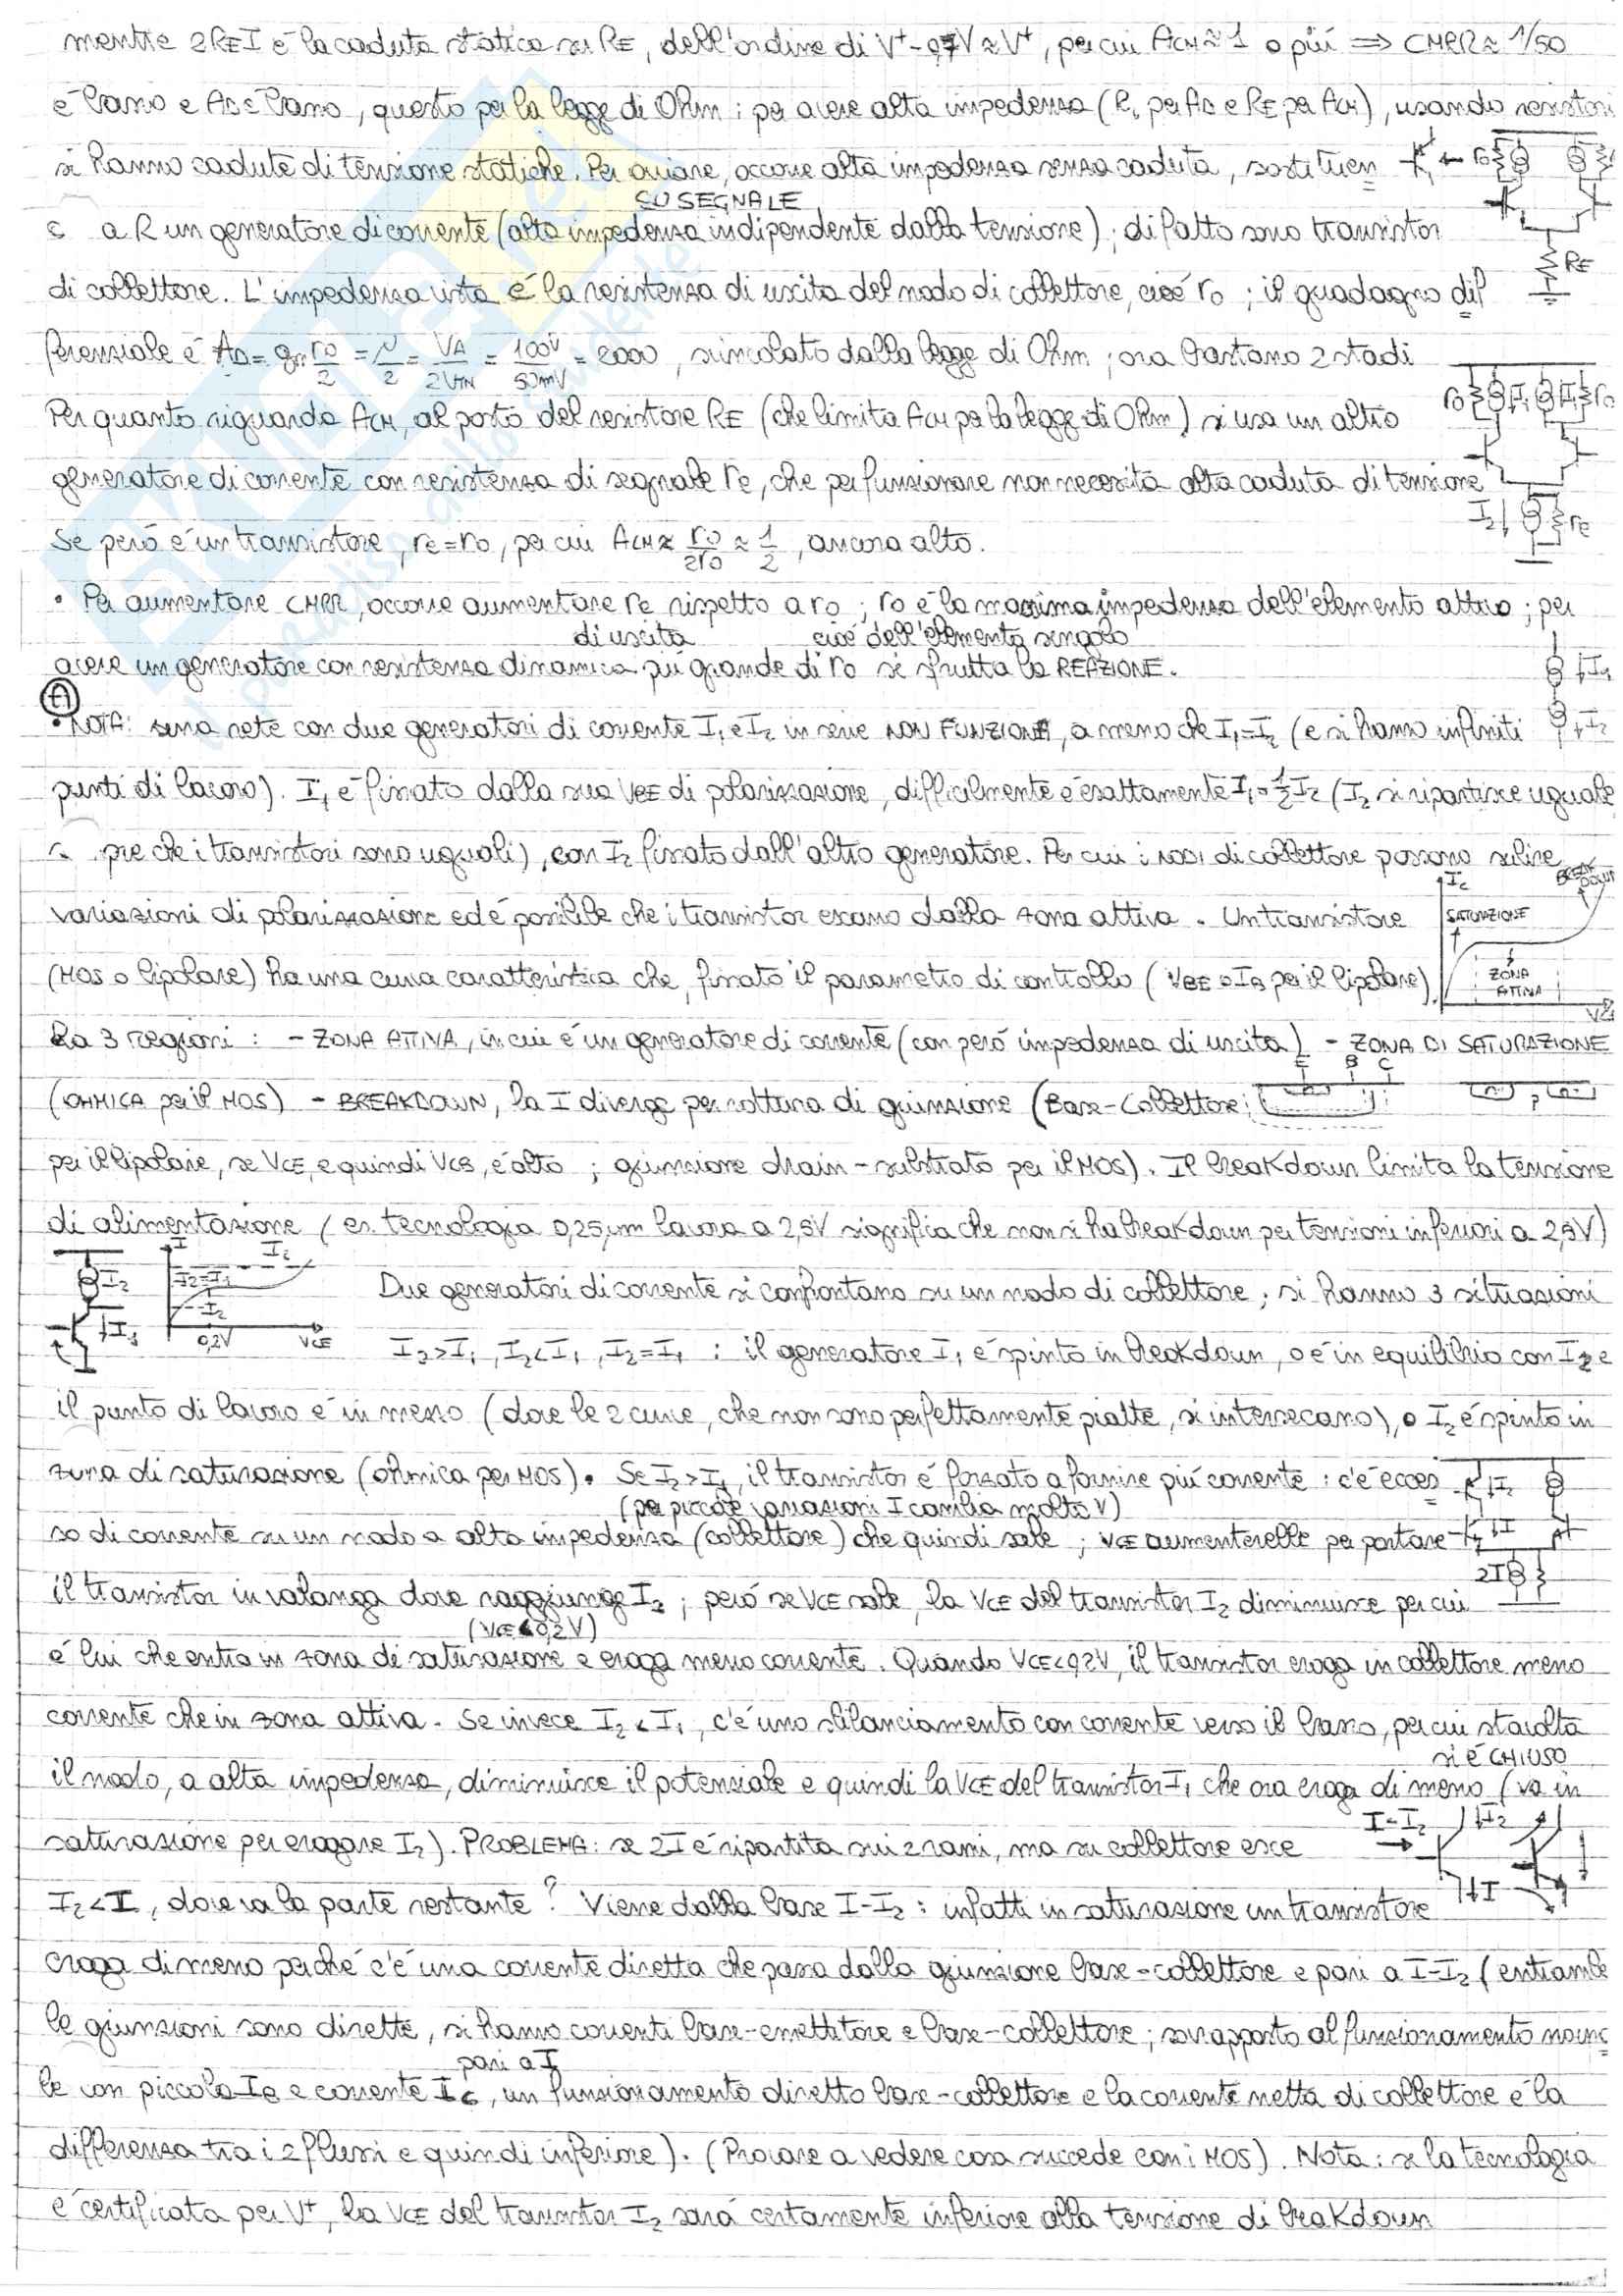 mentre 2REI è la caduta statica su RE, dell'ordine di V⁺-0,7V≈V⁺, per cui ACM≈1 o più ⇒ CMRR≈1/50
è basso e AD è basso, questo per la legge di Ohm: per avere alta impedenza (R, per AD e RE per ACM), usando resistori
si hanno cadute di tensione statiche. Per ovviare, occorre alta impedenza senza caduta, sostituen
SU SEGNALE
a R un generatore di corrente (alta impedenza indipendente dalla tensione); di fatto sono transistor
di collettore. L'impedenza vista è la resistenza di uscita del nodo di collettore, cioè ro; il guadagno dif
ferenziale è AD= gm ro/2 = μ/2 = VA/2VTH = 100V/50mV = 2000, svincolato dalla legge di Ohm; ora bastano 2 stadi
Per quanto riguarda ACM, al posto del resistore RE (che limita ACM per la legge di Ohm) si usa un altro
generatore di corrente con resistenza di segnale re, che per funzionare non necessita alta caduta di tensione
Se però è un transistore, re=ro, per cui ACM≈ ro/2ro ≈ 1/2, ancora alto.
• Per aumentare CMRR, occorre aumentare re rispetto a ro; ro è la massima impedenza dell'elemento attivo; per
di uscita cioè dell'elemento singolo
avere un generatore con resistenza dinamica più grande di ro si sfrutta la REAZIONE.
• NOTA: una rete con due generatori di corrente I₁ e I₂ in serie NON FUNZIONA, a meno che I₁=I₂ (e si hanno infiniti
punti di lavoro). I₁ è fissato dalla sua VBE di polarizzazione, difficilmente è esattamente I₁=½I₂ (I₂ si ripartisce uguale
pre che i transistori sono uguali), con I₂ fissato dall'altro generatore. Per cui i nodi di collettore possono subire
variazioni di polarizzazione ed è possibile che i transistor escano dalla zona attiva. Un transistore
(MOS o bipolare) ha una curva caratteristica che, fissato il parametro di controllo (VBE o IB per il bipolare)
IC BREAKDOWN
SATURAZIONE
ZONA ATTIVA
VCE
ha 3 regioni: - ZONA ATTIVA, in cui è un generatore di corrente (con però impedenza di uscita) - ZONA DI SATURAZIONE
E B C
(OHMICA per il MOS) - BREAKDOWN, la I diverge per rottura di giunzione (Base-Collettore;
per il bipolare, se VCE, e quindi VCB, è alto; giunzione drain-substrato per il MOS). Il breakdown limita la tensione
di alimentazione (es. tecnologia 0,25μm lavora a 2,5V significa che non si ha breakdown per tensioni inferiori a 2,5V)
Due generatori di corrente si confrontano su un nodo di collettore; si hanno 3 situazioni
0,2V VCE
I₂>I₁, I₂<I₁, I₂=I₁: il generatore I₁ è spinto in breakdown, o è in equilibrio con I₂ e
il punto di lavoro è in mezzo (dove le 2 curve, che non sono perfettamente piatte, si intersecano), o I₂ è spinto in
zona di saturazione (ohmica per MOS). Se I₂>I₁, il transistor è forzato a fornire più corrente: c'è ecces
(per piccole variazioni I cambia molto V)
so di corrente su un nodo a alta impedenza (collettore) che quindi sale; VCE aumenterebbe per portare
2I
il transistor in valanga dove raggiunge I₂; però se VCE sale, la VCE del transistor I₂ diminuisce per cui
(VCE<0,2V)
è lui che entra in zona di saturazione e eroga meno corrente. Quando VCE<0,2V, il transistor eroga in collettore meno
corrente che in zona attiva. Se invece I₂<I₁, c'è uno sbilanciamento con corrente verso il basso, per cui stavolta
si è CHIUSO
il nodo, a alta impedenza, diminuisce il potenziale e quindi la VCE del transistor I₁ che ora eroga di meno (va in
I-I₂ I₂
saturazione per erogare I₂). PROBLEMA: se 2I è ripartita sui 2 rami, ma su collettore esce
I₂<I, dove va la parte restante? Viene dalla base I-I₂: infatti in saturazione un transistore
eroga di meno perché c'è una corrente diretta che passa dalla giunzione base-collettore e pari a I-I₂ (entrambe
le giunzioni sono dirette, si hanno correnti base-emettitore e base-collettore; sovrapposto al funzionamento
pari a I
le con piccola IB e corrente IC, un funzionamento diretto base-collettore e la corrente netta di collettore è la
differenza tra i 2 flussi e quindi inferiore). (Provare a vedere cosa succede con i MOS). Nota: se la tecnologia
è certificata per V⁺, la VCE del transistor I₂ sarà certamente inferiore alla tensione di breakdown